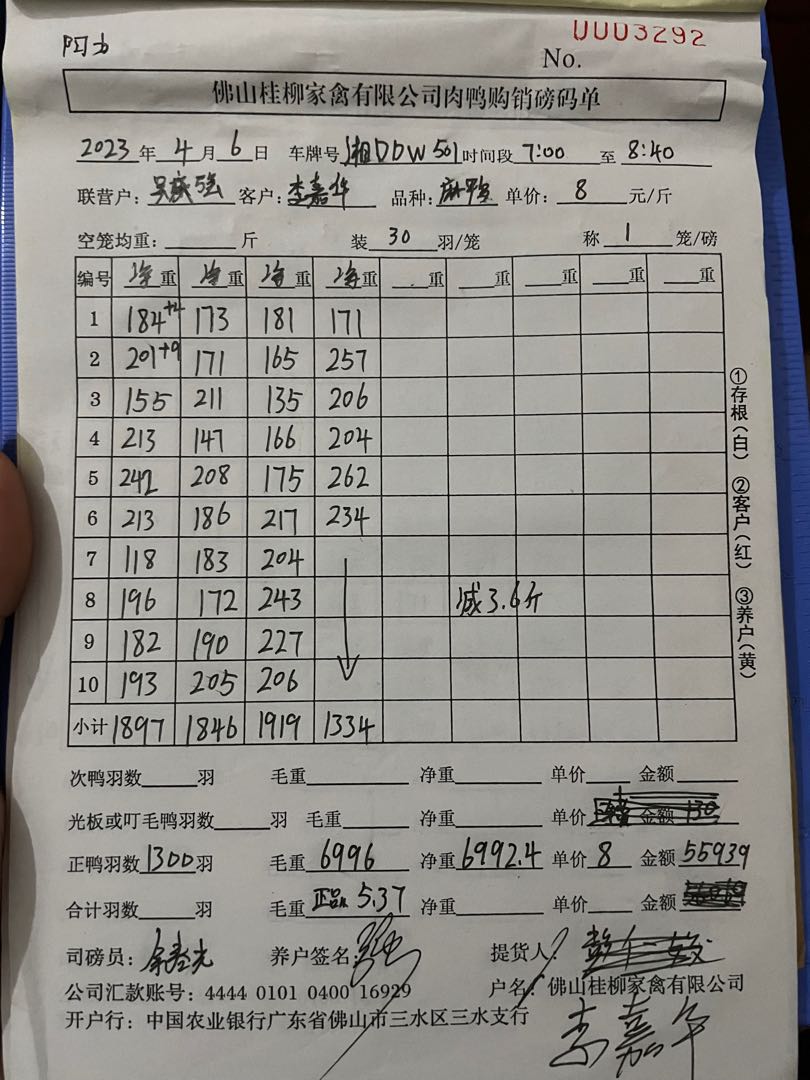 阿力
0003292
No.
佛山桂柳家禽有限公司肉鸭购销磅码单
2023年4月6日 车牌号湘DDW501时间段7:00至8:40
联营户: 客户:李嘉华 品种:麻鸭 单价:8元/斤
空笼均重:______斤 装30羽/笼 称1笼/磅
编号 净重 净重 净重 净重 __重 __重 __重 __重 __重
1 184+4 173 181 171
2 201+9 171 165 257
3 155 211 135 206
4 213 147 166 204
5 242 208 175 262
6 213 186 217 234
7 118 183 204
8 196 172 243 减3.6斤
9 182 190 227
10 193 205 206
小计 1897 1846 1919 1334
①存根(白) ②客户(红) ③养户(黄)
次鸭羽数____羽 毛重____ 净重____ 单价____ 金额____
光板或叮毛鸭羽数____羽 毛重____ 净重____ 单价 金额 130
正鸭羽数1300羽 毛重6996 净重6992.4 单价8 金额55939
合计羽数____羽 毛重正品5.37 净重____ 单价____ 金额
司磅员: 养户签名: 提货人:
公司汇款账号:4444 0101 0400 16929 户名:佛山桂柳家禽有限公司
开户行:中国农业银行广东省佛山市三水区三水支行
李嘉华